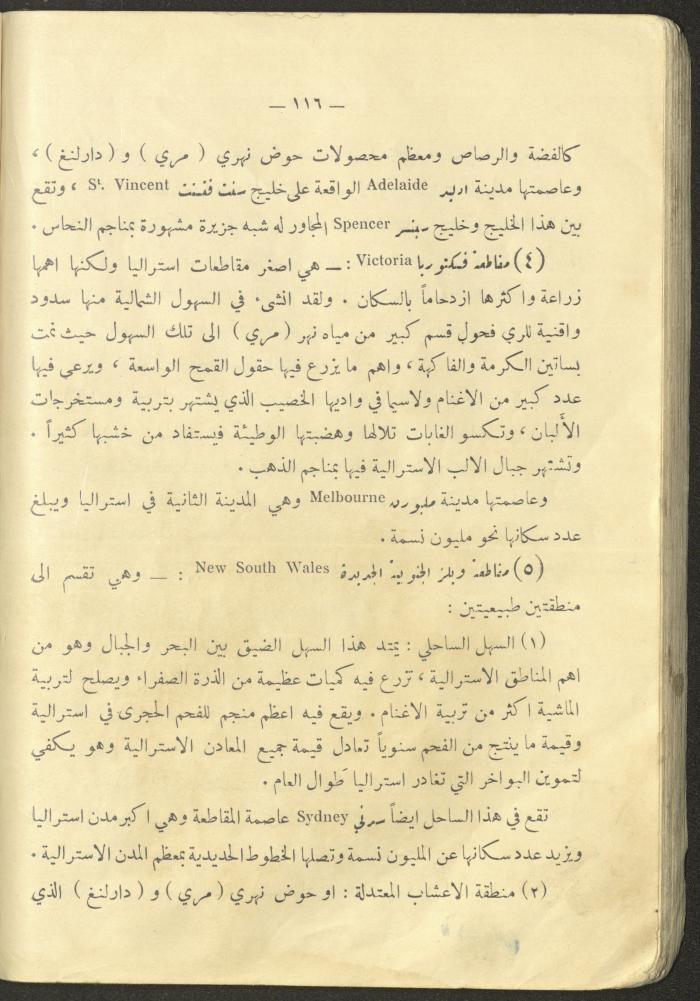 — ١١٦ —
كالفضة والرصاص ومعظم محصولات حوض نهري ( مري ) و ( دارلنغ ) ،
وعاصمتها مدينة ادليد Adelaide الواقعة على خليج سنت ڤنسنت St. Vincent ، وتقع
بين هذا الخليج وخليج سبنسر Spencer المجاور له شبه جزيرة مشهورة بمناجم النحاس .
(٤) مقاطعة فكتوريا Victoria : — هي اصغر مقاطعات استراليا ولكنها اهمها
زراعة واكثرها ازدحاماً بالسكان . ولقد انشىء في السهول الشمالية منها سدود
واقنية للري فحول قسم كبير من مياه نهر ( مري ) الى تلك السهول حيث نمت
بساتين الكرمة والفاكهة ، واهم ما يزرع فيها حقول القمح الواسعة ، ويرعى فيها
عدد كبير من الاغنام ولاسيما في واديها الخصيب الذي يشتهر بتربية ومستخرجات
الألبان ، وتكسو الغابات تلالها وهضبتها الوطيئة فيستفاد من خشبها كثيراً .
وتشتهر جبال الالب الاسترالية فيها بمناجم الذهب .
وعاصمتها مدينة ملبورن Melbourne وهي المدينة الثانية في استراليا ويبلغ
عدد سكانها نحو مليون نسمة .
(٥) مقاطعة ويلز الجنوبية الجديدة New South Wales : — وهي تقسم الى
منطقتين طبيعيتين :
(١) السهل الساحلي : يمتد هذا السهل الضيق بين البحر والجبال وهو من
اهم المناطق الاسترالية ، تزرع فيه كميات عظيمة من الذرة الصفراء ويصلح لتربية
الماشية اكثر من تربية الاغنام . ويقع فيه اعظم منجم للفحم الحجرى في استرالية
وقيمة ما ينتج من الفحم سنوياً تعادل قيمة جميع المعادن الاسترالية وهو يكفي
لتموين البواخر التي تغادر استراليا طَوال العام .
تقع في هذا الساحل ايضاً سدني Sydney عاصمة المقاطعة وهي اكبر مدن استراليا
ويزيد عدد سكانها عن المليون نسمة وتصلها الخطوط الحديدية بمعظم المدن الاسترالية .
(٢) منطقة الاعشاب المعتدلة : او حوض نهري ( مري ) و ( دارلنغ ) الذي